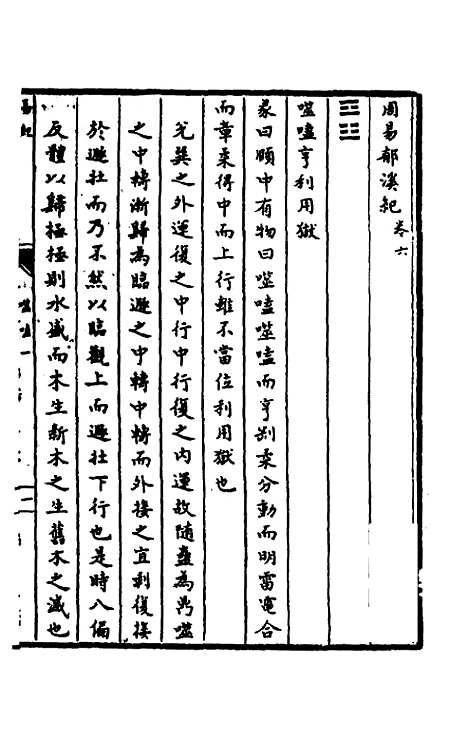 周易郁溪紀 卷六
噬嗑亨利用獄
彖曰頤中有物曰噬嗑噬嗑而亨剛柔分動而明雷電合
而章柔得中而上行雖不當位利用獄也
兌巽之外運復之中行中行復之內運故隨蠱為噬
之中轉漸歸為臨遯之中轉中轉而外接之宜剝復接
於遯壯而乃不然以臨觀上而遯壯下行也是時八偏
反體以歸極極則水盛而木生新木之生舊木之滅也
噬嗑一